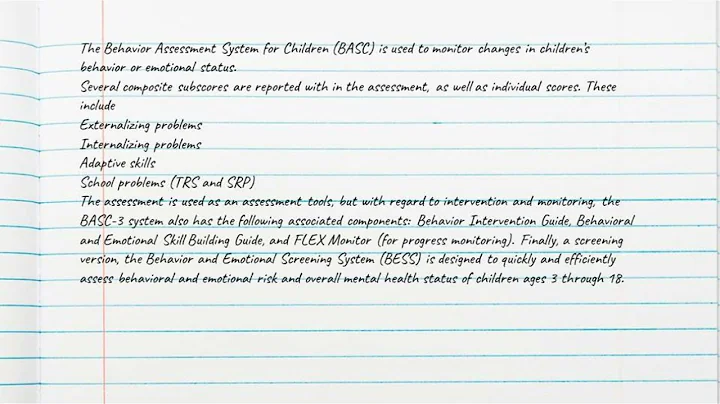 The Behavior Assessment System for Children (BASC) is used to monitor changes in children's
behavior or emotional status.
Several composite subscores are reported with in the assessment, as well as individual scores. These
include
Externalizing problems
Internalizing problems
Adaptive skills
School problems (TRS and SRP)
The assessment is used as an assessment tools, but with regard to intervention and monitoring, the
BASC-3 system also has the following associated components: Behavior Intervention Guide, Behavioral
and Emotional Skill Building Guide, and FLEX Monitor (for progress monitoring). Finally, a screening
version, the Behavior and Emotional Screening System (BESS) is designed to quickly and efficiently
assess behavioral and emotional risk and overall mental health status of children ages 3 through 18.